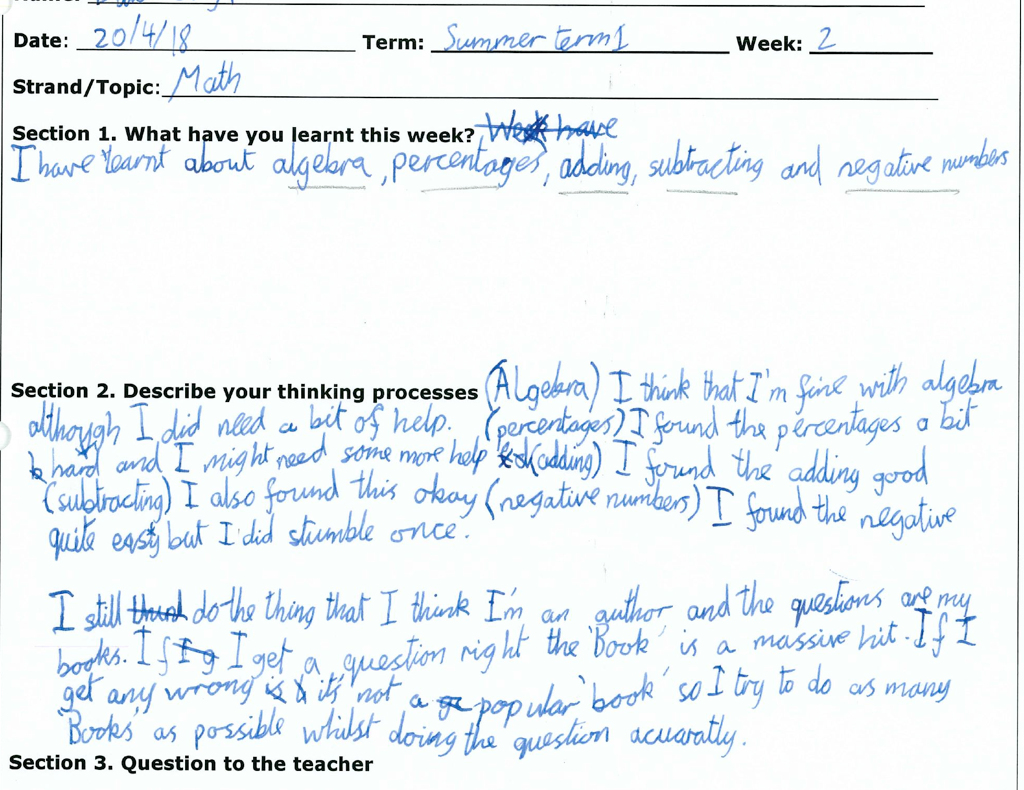 Date: 20/4/18 Term: Summer term 1 Week: 2
Strand/Topic: Math
Section 1. What have you learnt this week? Week have
I have learnt about algebra, percentages, adding, subtracting and negative numbers
Section 2. Describe your thinking processes (Algebra) I think that I'm fine with algebra
although I did need a bit of help. (percentages) I found the percentages a bit
hard and I might need some more help (adding) I found the adding good
(subtracting) I also found this okay (negative numbers) I found the negative
quite easy but I did stumble once.
I still do the thing that I think I'm an author and the questions are my
books. If I get a question right the 'Book' is a massive hit. If I
get any wrong it's not a popular 'book' so I try to do as many
'Books' as possible whilst doing the question acuaratly.
Section 3. Question to the teacher